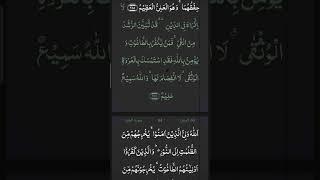 حِفْظُهُمَا ۚ وَهُوَ الْعَلِيُّ الْعَظِيْمُ ﴿۲۵۵﴾ لَاۤ
اِكْرَاهَ فِی الدِّيْنِ ۙ قَدْ تَّبَيَّنَ الرُّشْدُ
مِنَ الْغَيِّ ۚ فَمَنْ يَّكْفُرْ بِالطَّاغُوْتِ وَ
يُؤْمِنْۢ بِاللّٰهِ فَقَدِ اسْتَمْسَكَ بِالْعُرْوَةِ
الْوُثْقٰی ۗ لَا انْفِصَامَ لَهَا ؕ وَاللّٰهُ سَمِيْعٌ
عَلِيْمٌ ﴿۲۵۶﴾
اَللّٰهُ وَلِیُّ الَّذِيْنَ اٰمَنُوْا ۙ يُخْرِجُهُمْ مِّنَ
الظُّلُمٰتِ اِلَی النُّوْرِ ؕ وَالَّذِيْنَ كَفَرُوْۤا
اَوْلِيٰٓـُٔهُمُ الطَّاغُوْتُ ۙ يُخْرِجُوْنَهُمْ مِّنَ